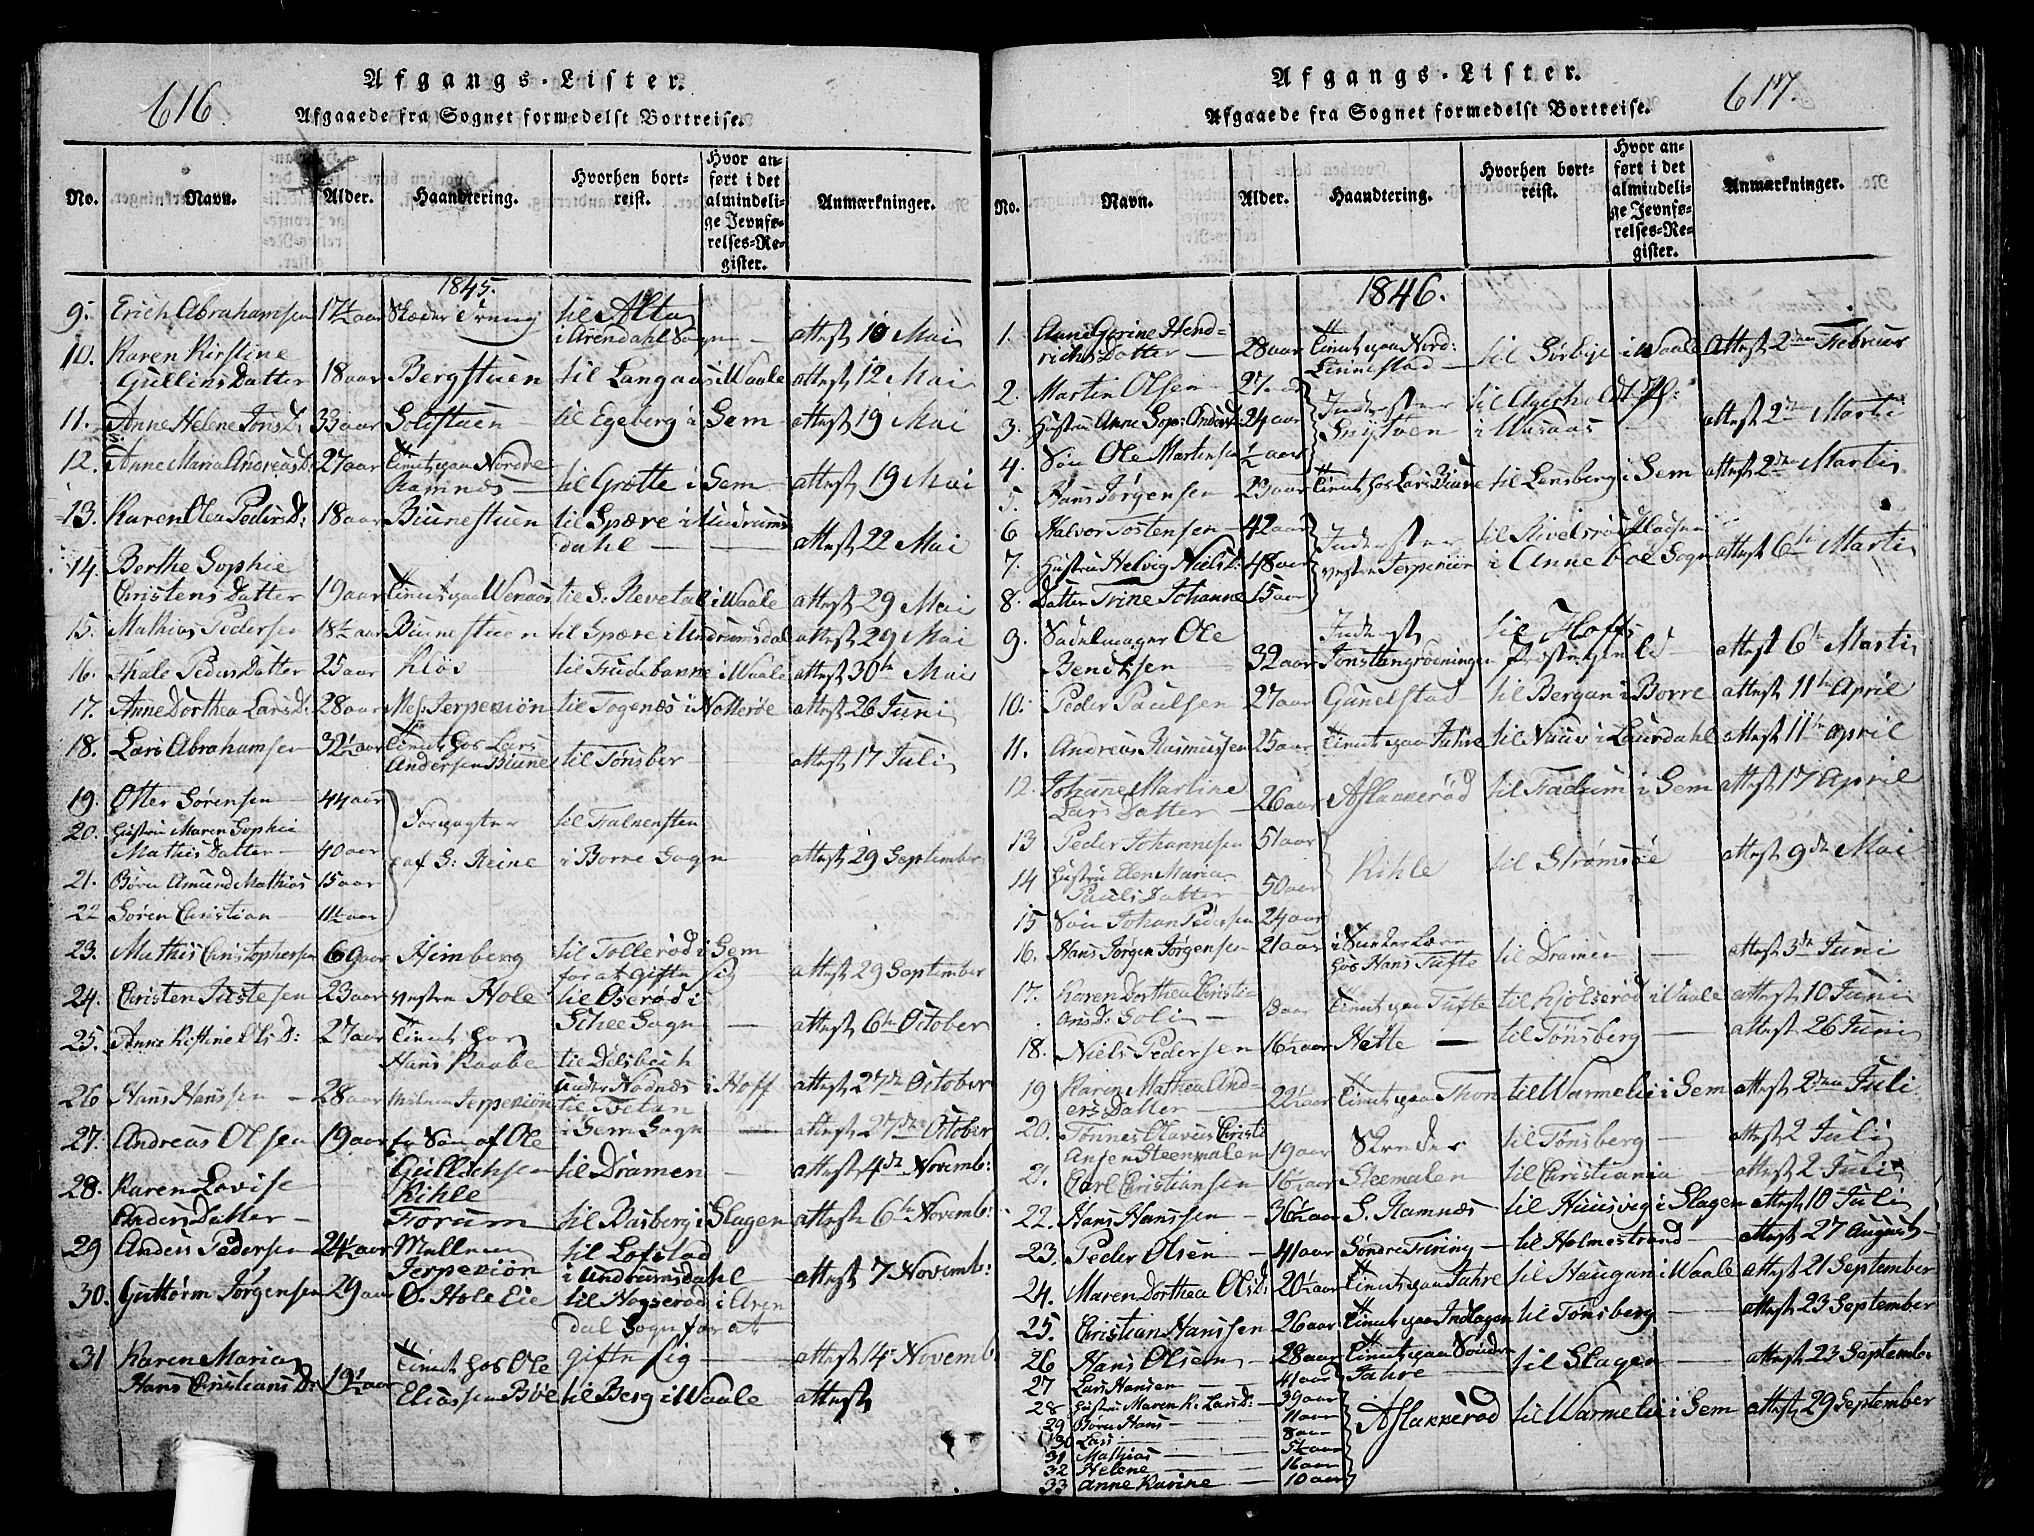 616.
Afgangs-Lister.
Afgaaede fra Sognet formedelst Bortreise.
No. Navn. Alder. Haandtering. Hvorhen bortreist. Hvor anført i det almindelige Jevnførelses-Register. Anmærkninger.
1845.
9. Erich Abrahamsen 17½ aar til Alta
i Arendahl Sogn — attest 10 Mai
10. Karen Kirstine
Gullins Datter 18 aar Bergstuen til Langaas i Waale attest 12 Mai
11. Anne Helene Jons D: 33 aar Solstuen til Egeberg i Sem attest 19 Mai
12. Anne Maria Andreas D: 27 aar Tient paa Nordre
Ramnæs til Grøtte i Sem attest 19 Mai
13. Karen Olea Peders D: 18 aar Biunestuen til Spære i Undrums
dahl — attest 22 Mai
14. Berthe Sophie
Christens Datter 19 aar Tient paa Wenaas til S. Revetal i Waale attest 29 Mai
15. Mathias Pedersen 18½ aar Biunestuen til Spære i Undrumsdal attest 29 Mai
16. Thale Peders Datter 25 aar Kløv til i Waale attest 30te Mai
17. Anne Dorthea Lars D: 28 aar Mel. Jerpeniøn til Togenæs i Notterøe attest 26 Juni
18. Lars Abrahamsen 32½ aar Tient hos Lars
Andersen Biune til Tønsber attest 17 Juli
19. Otter Sørensen 44 aar
20. Hustru Maren Sophie
Mathis Datter 40 aar
Forpagter
af S: Reine
til Falnensten
i Borre Sogn attest 29 September
21. Børn Amund Mathias 15 aar
22 Søren Christian 11½ aar
23. Mathis Christophersen 69 aar Himberg til Tollerød i Sem
for at gifte sig attest 29 September
24. Christen Justesen 23 aar vestre Hole til Oserød i
Schee Sogn — attest 6te October
25. Anne Kistine Ols D: 27 aar Tient hos
Hans Raabe til
under i Hoff attest 27de October
26 Hans Hanssen 28 aar Mellem Jerpeniøn til Tvetan
i Sem Sogn — attest 27de October
27. Andreas Olsen 19 aar fr Søn af Ole
Gullichsen
Kihle til Dramen — attest 4de Novemb:
28. Karen Lovise
Anders Datter Forum til Rasberg i Slagen attest 6te Novemb:
29 Anders Pedersen 24½ aar Mellem
Jerpeniøn til Lofstad
i Undrumsdahl attest 7 Novemb:
30. Guttorm Jørgensen 29 aar Ø. Hole Eie til Hogserød i Aren
dal Sogn for at
gifte sig — attest 14 Novemb
31 Karen Maria
Hans Christians D: 19½ aar Tient hos Ole
Eliassen Bøe til Berg i Waale attest
617.
Afgangs-Lister.
Afgaaede fra Sognet formedelst Bortreise.
No. Navn. Alder. Haandtering. Hvorhen bortreist. Hvor anført i det almindelige Jevnførelses-Register. Anmærkninger.
1846.
1. Anne Gorine Hend-
richs Datter — 28 aar Tient paa Nord:
Linnestad til Sørbye i Waale Attest 2den Februar
2. Martin Olsen 27 aar
3. Hustru Anne Sop: Anders D: 24 aar
4. Søn Ole Martinsen ½ aar
Inderster
til
i Waraas — attest 2den Marti
5. Hans Jørgensen 23 aar Tient hos Lars Biune til Lensberg i Sem attest 2den Marti
6 Halvor Tostensen 42 aar
7. Hustru Helvig Niels D: 48 aar
8. Datter Trine Johanne 15 aar
Inderster
vestre Jerpeniøn
til Rivelsrød Pladsen
i Anneboe Sogn attest 6te Marti
9. Sadelmager Ole
Bendtsen — 32 aar Inderst
til Hoffs
Præstegield — attest 6te Marti
10. Peder Paulsen 27 aar Gunelstad til Bergan i Borre attest 11te April
11. Andreas Rasmussen 25 aar Tient paa Jahre til i Laurdahl attest 11te april
12. Johanne Martine
Lars Datter — 26 aar Aslannerød til Fadum i Sem attest 17 April
13 Peder Johannesen 51 aar
14 Hustru Elen Maria
Pauls Datter — 50 aar
15 Søn Johan Pedersen 24 aar
Kihle til Strømsøe attest 9de Mai
16. Hans Jørgen Jørgensen 21 aar i
hos Hans Tufte til Dramen — attest 3de Juni
17. Karen Dorthea Christi-
ans D: Soli — 18 aar Tient paa Tufte til Kjølserød i Waale attest 10 Juni
18. Niels Pedersen 16½ aar Hette — til Tønsberg — attest 26 Juni
19 Karen Mathea And-
ers Datter — 22½ aar Tient paa Thon til Warmelie i Sem attest 2den Juli
20. Tønnes Olavus Christi
ansen Steenmalen 19 aar til Tønsberg — attest 2 Juli
21. Carl Christiansen 16½ aar Steemalen til Christiania — attest 2 Juli
22. Hans Hanssen — 36½ aar S. Ramnæs til Huusvig i Slagen attest 10 Juli
23. Peder Olsen — 41 aar Søndre Firing til Holmestrand — attest 27 August
24. Maren Dorthea Ols D: 20½ aar Tient paa Jahre til Haugan i Waale attest 21 September
25. Christian Hanssen 26 aar Tient paa Indlagen til Tønsberg — attest 23 September
26 Hans Olsen — 28 aar Tient paa Søndre
Jahre — til Slagen — attest 23 September
27 Lars Hansen — 41 aar
28 Hustru Maren K. Lars D: 39 aar
29 Børn Hans — 11 aar
30 Lars — 8 aar
31 Mathias — 5½ aar
32 Helene — 16 aar
33 Anne Karine — 10 aar
Aslannerød til Warmelie i Sem attest 29 September